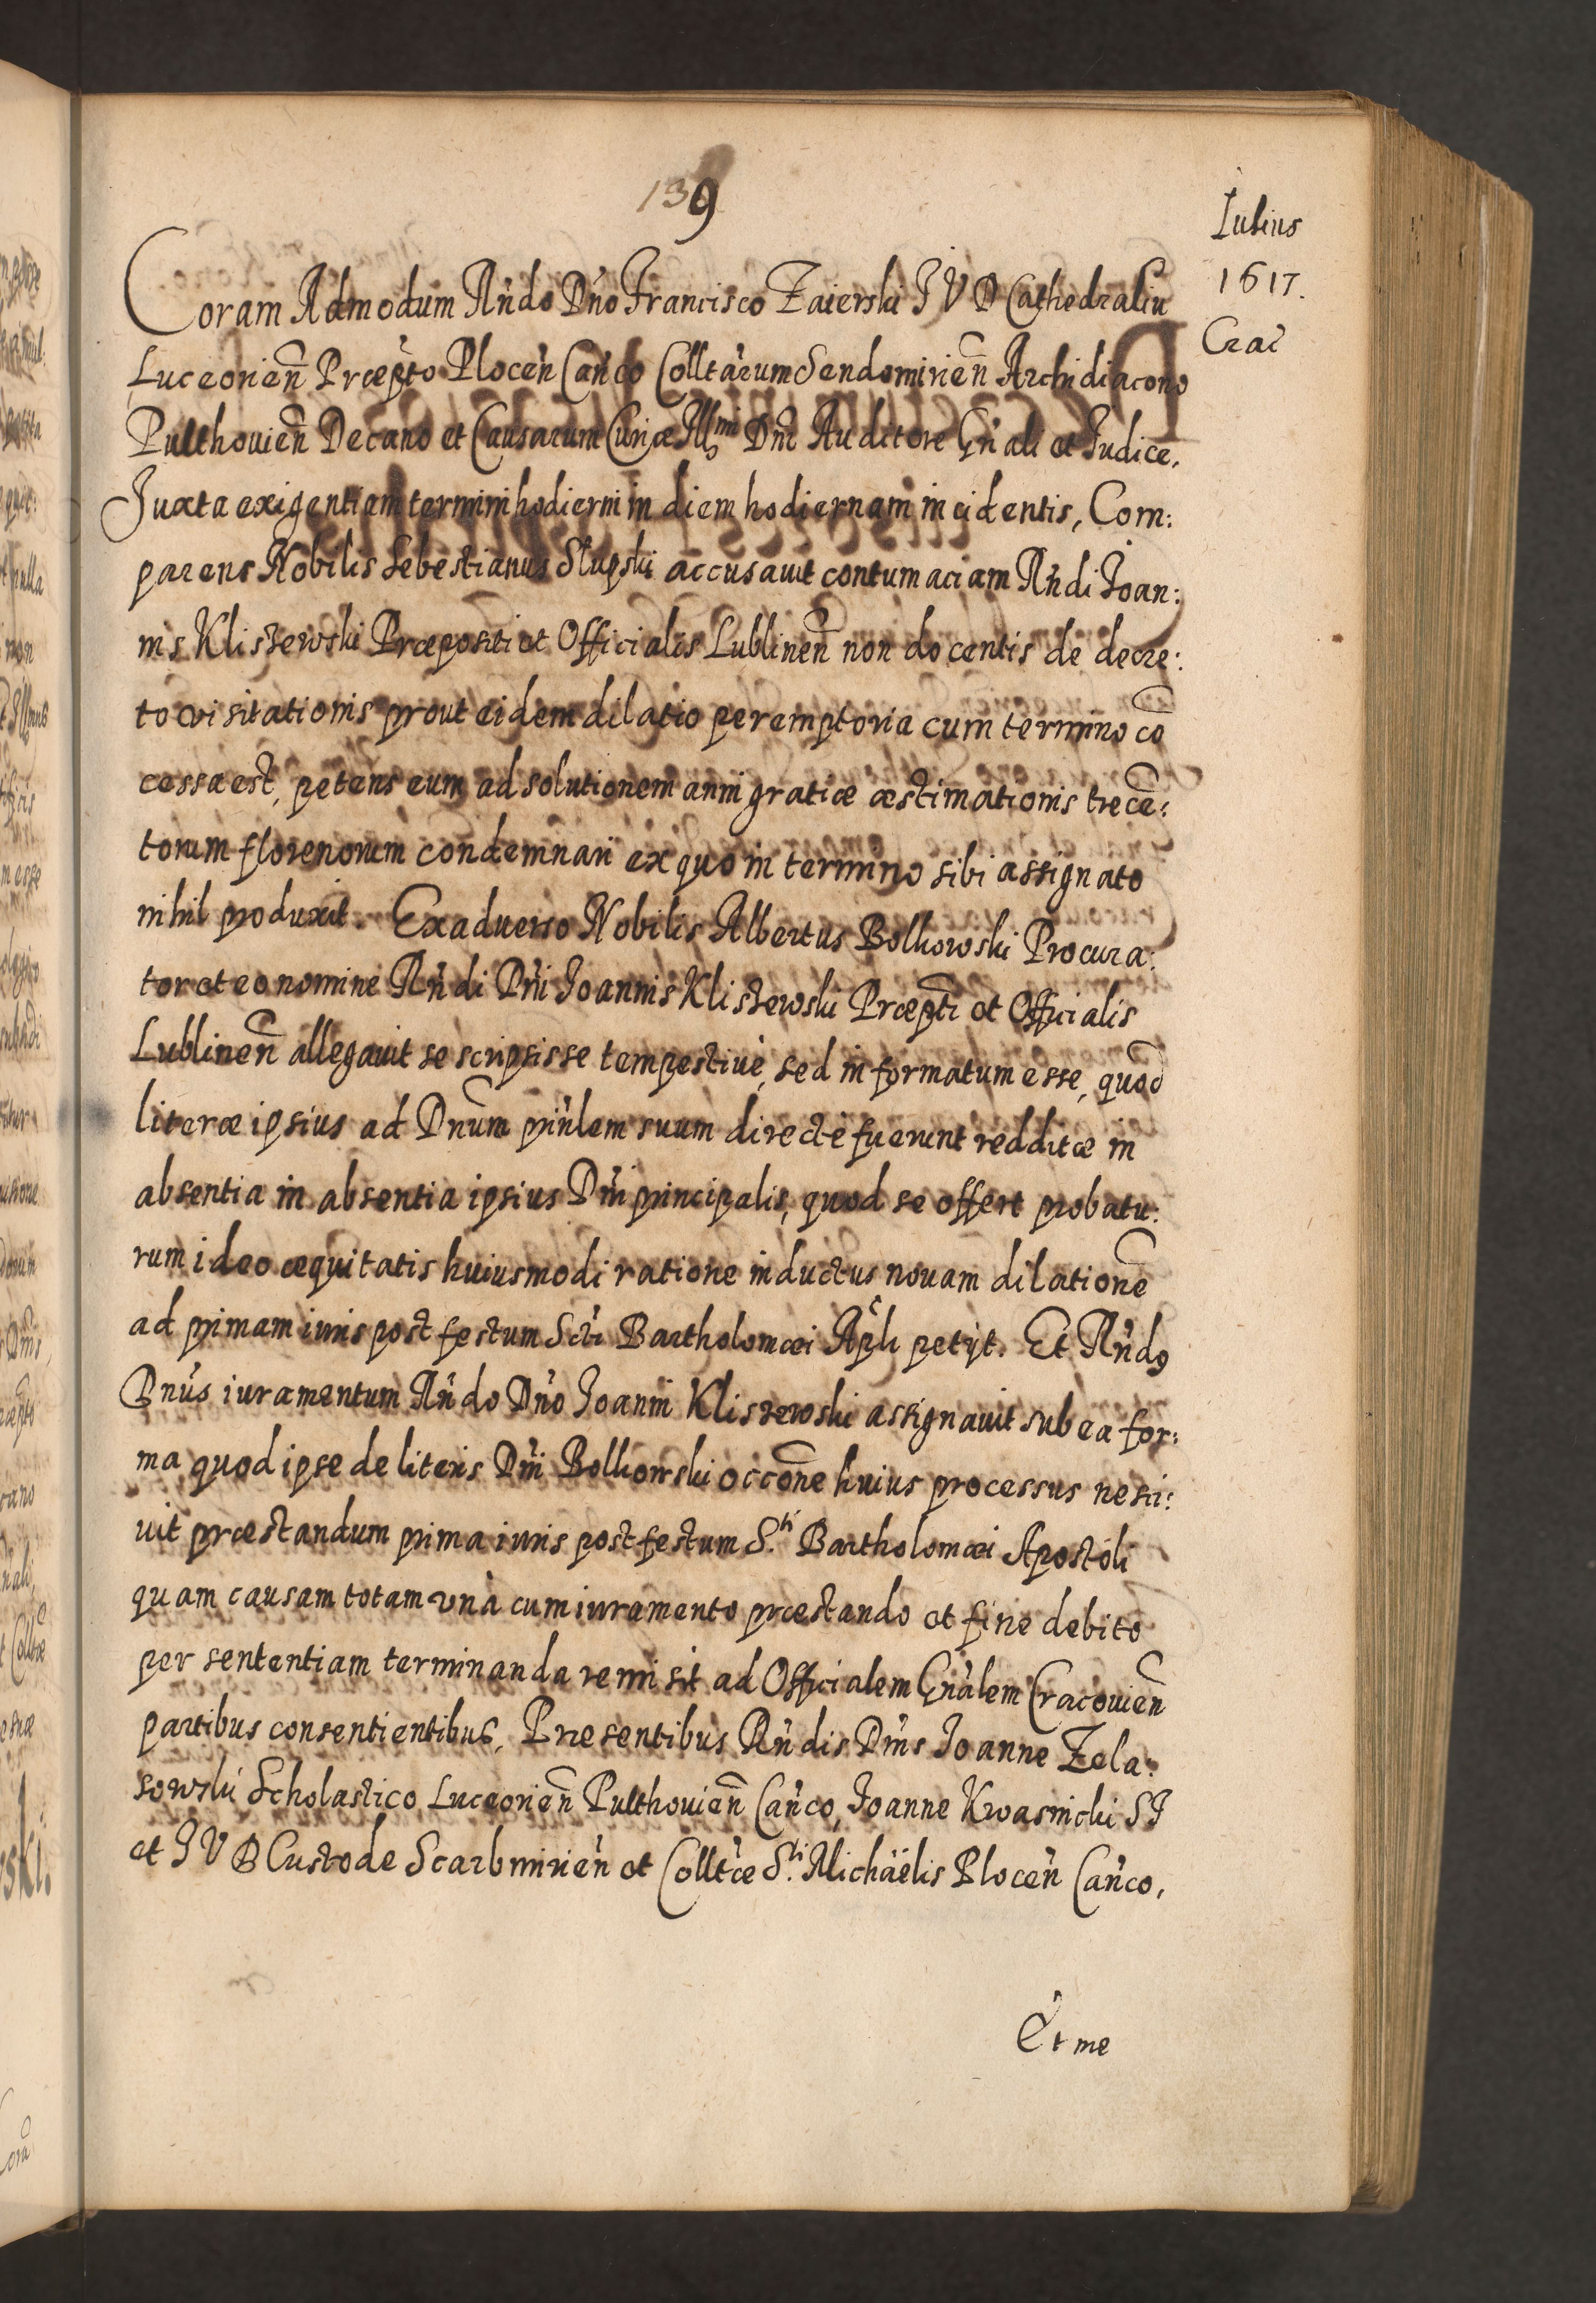 139
Iulius
1617.
Crac̃
Coram Admodum Rñdo Dño Francisco Zaierski I V D Cathedraliu
Luceorieñ Præp̃to Ploceñ Cañco Colltãrum Sendomirieñ Archidiacono
Pulthouieñ Decano et Causarum Curiæ Illmi Dñi Auditore Gñali et Iudice.
Iuxta exigentiam termini hodierni in diem hodiernam incidentis, Com:
parens Nobilis Sebestianus Slupski accusauit contumaciam Rñdi Ioan:
nis Kliszewski Præpositi et Officialis Lublineñ non docentis de decre:
to visitationis prout eidem dilatio peremptoria cum termino cõ
cessa est, petens eum ad solutionem anni gratiæ æstimationis trecẽ:
torum florenorum condemnari ex quo in termino sibi assignato
nihil produxit. Exaduerso Nobilis Albertus Bolkowski Procura:
tor et eo nomine Rñdi Dñi Ioannis Kliszewski Præp̃ti et Officialis
Lublineñ allegauit se scripsisse tempestiuè, sed informatum esse, quod
literæ ipsius ad Dñum priñlem suum directè fuerunt redditæ in
absentia in absentia ipsius Dñi principalis, quod se offert probatu:
rum ideo æquitatis huiusmodi ratione inductus nouam dilationẽ
ad primam iuris post festum Scti Bartholomæi Apl̃i petijt. Et Rñdg
Dñus iuramentum Rñdo Dño Ioanni Kliszewski assignauit sub ea for:
ma quod ipse de literis Dñi Bolkowski occõne huius processus nesci:
uit præstandum prima iuris post festum S.ti Bartholomæi Apostoli
quam causam totam vnà cum iuramento præstando et fine debito
per sententiam terminanda remisit ad Officialem Gñalem Cracouieñ
partibus consentientibus. Præsentibus Rñdis Dñis Ioanne Zela:
sowski Scholastico Luceorieñ Pulthouieñ Cañco, Ioanne Kwasnicki SI
et I V D Custode Scarbmirieñ et Colltæ S.ti Michäelis Ploceñ Cañco,
Et me